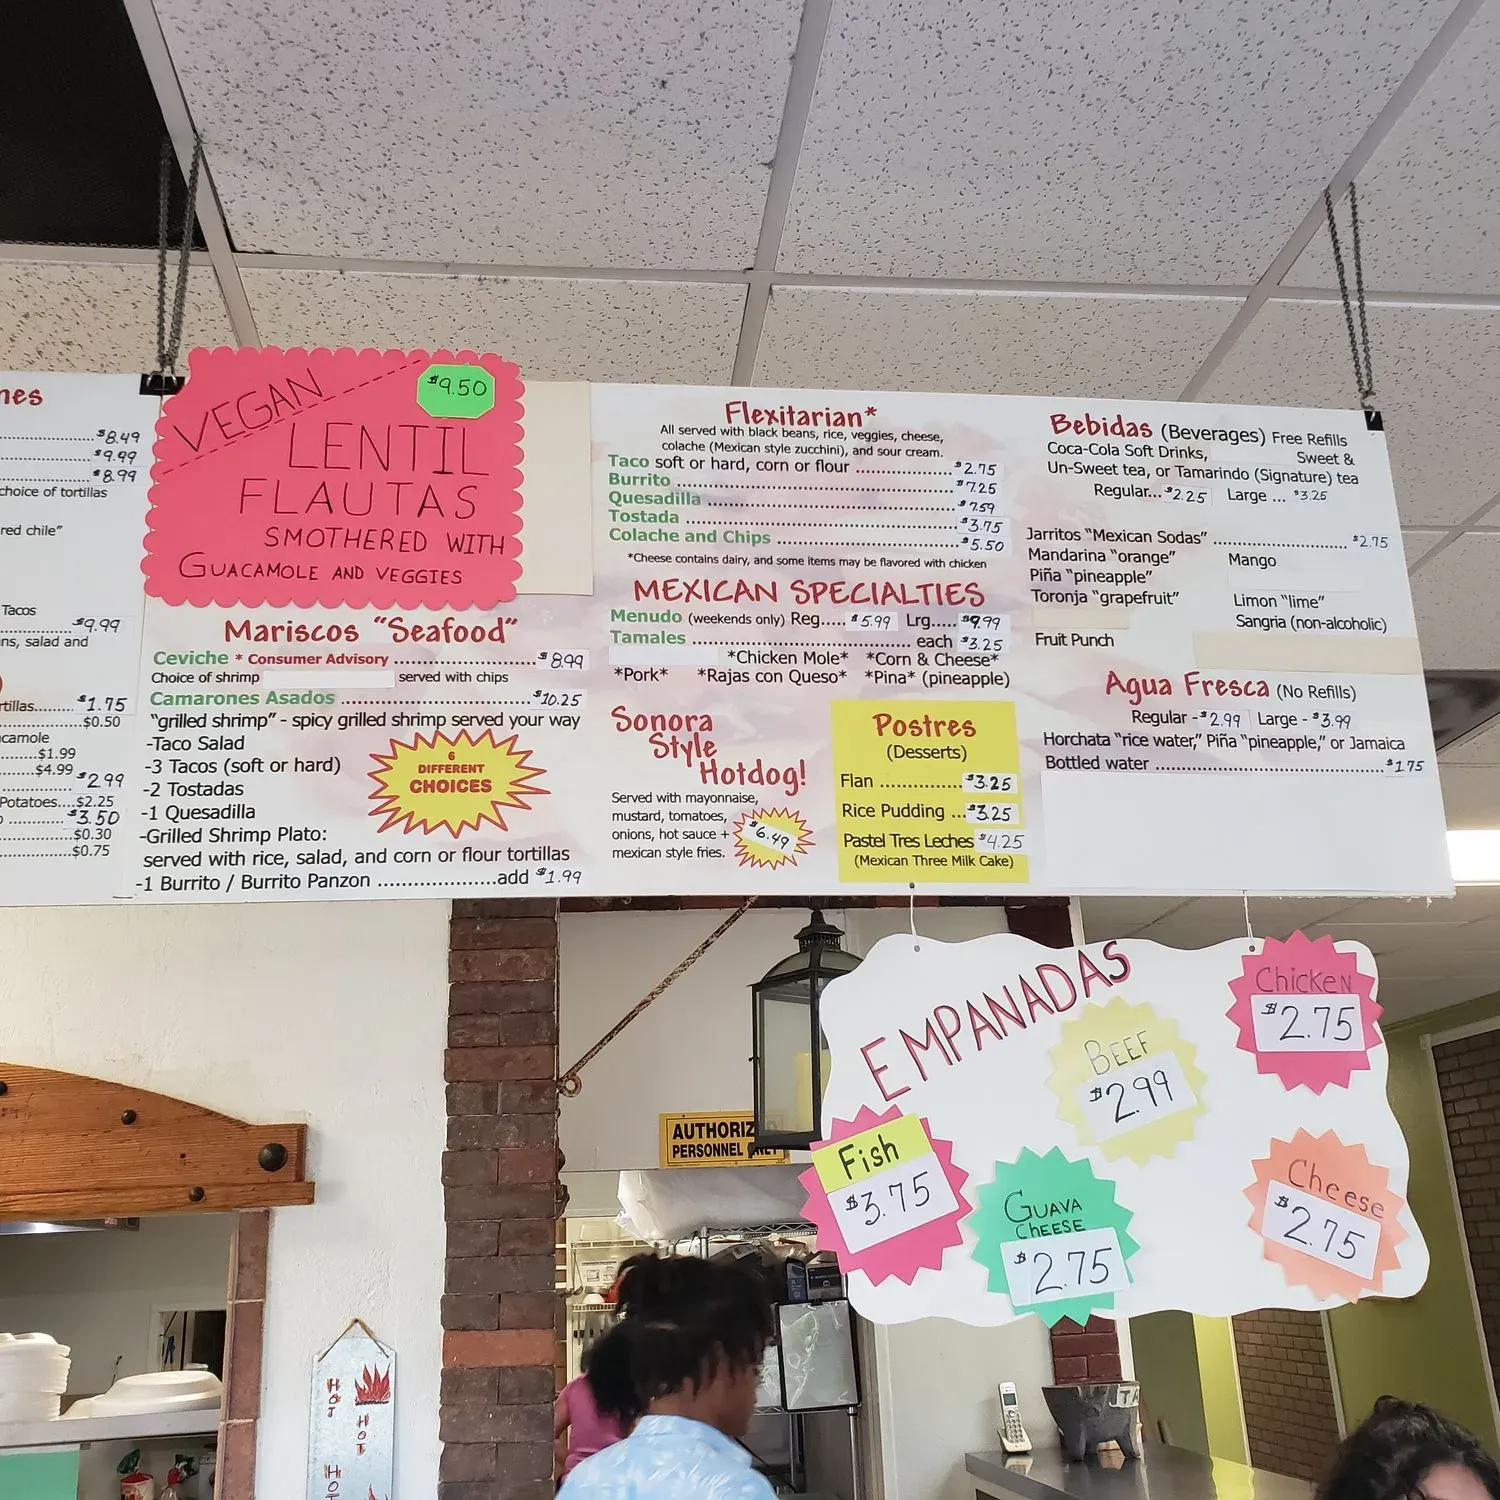 nes
$8.49
$9.99
$8.99
choice of tortillas
red chile"
Tacos
$9.99
ns, salad and
rtillas...... $1.75
$0.50
camole
$1.99
$4.99
$2.99
Potatoes....$2.25
$3.50
$0.30
$0.75
VEGAN
$9.50
LENTIL
FLAUTAS
SMOTHERED WITH
GUACAMOLE AND VEGGIES
Mariscos "Seafood"
Ceviche * Consumer Advisory ........ $8.99
Choice of shrimp served with chips
Camarones Asados ........ $10.25
"grilled shrimp" - spicy grilled shrimp served your way
-Taco Salad
-3 Tacos (soft or hard)
-2 Tostadas
-1 Quesadilla
-Grilled Shrimp Plato:
served with rice, salad, and corn or flour tortillas
-1 Burrito / Burrito Panzon ........ add $1.99
6
DIFFERENT
CHOICES
Flexitarian*
All served with black beans, rice, veggies, cheese,
colache (Mexican style zucchini), and sour cream.
Taco soft or hard, corn or flour ........ $2.75
Burrito ........ $7.25
Quesadilla ........ $7.59
Tostada ........ $3.75
Colache and Chips ........ $5.50
*Cheese contains dairy, and some items may be flavored with chicken
MEXICAN SPECIALTIES
Menudo (weekends only) Reg.... $5.99 Lrg.... $9.99
Tamales ........ each $3.25
*Chicken Mole* *Corn & Cheese*
*Pork* *Rajas con Queso* *Pina* (pineapple)
Sonora
Style
Hotdog!
Served with mayonnaise,
mustard, tomatoes,
onions, hot sauce +
mexican style fries.
$6.49
Postres
(Desserts)
Flan ........ $3.25
Rice Pudding ... $3.25
Pastel Tres Leches $4.25
(Mexican Three Milk Cake)
Bebidas (Beverages) Free Refills
Coca-Cola Soft Drinks, Sweet &
Un-Sweet tea, or Tamarindo (Signature) tea
Regular... $2.25 Large ... $3.25
Jarritos "Mexican Sodas" ........ $2.75
Mandarina "orange" Mango
Piña "pineapple"
Toronja "grapefruit" Limon "lime"
Sangria (non-alcoholic)
Fruit Punch
Agua Fresca (No Refills)
Regular - $2.99 Large - $3.99
Horchata "rice water," Piña "pineapple," or Jamaica
Bottled water ........ $1.75
EMPANADAS
Chicken
$2.75
BEEF
$2.99
Fish
$3.75
GUAVA
CHEESE
$2.75
Cheese
$2.75
AUTHORIZ
PERSONNEL
HOT
HOT
HOT